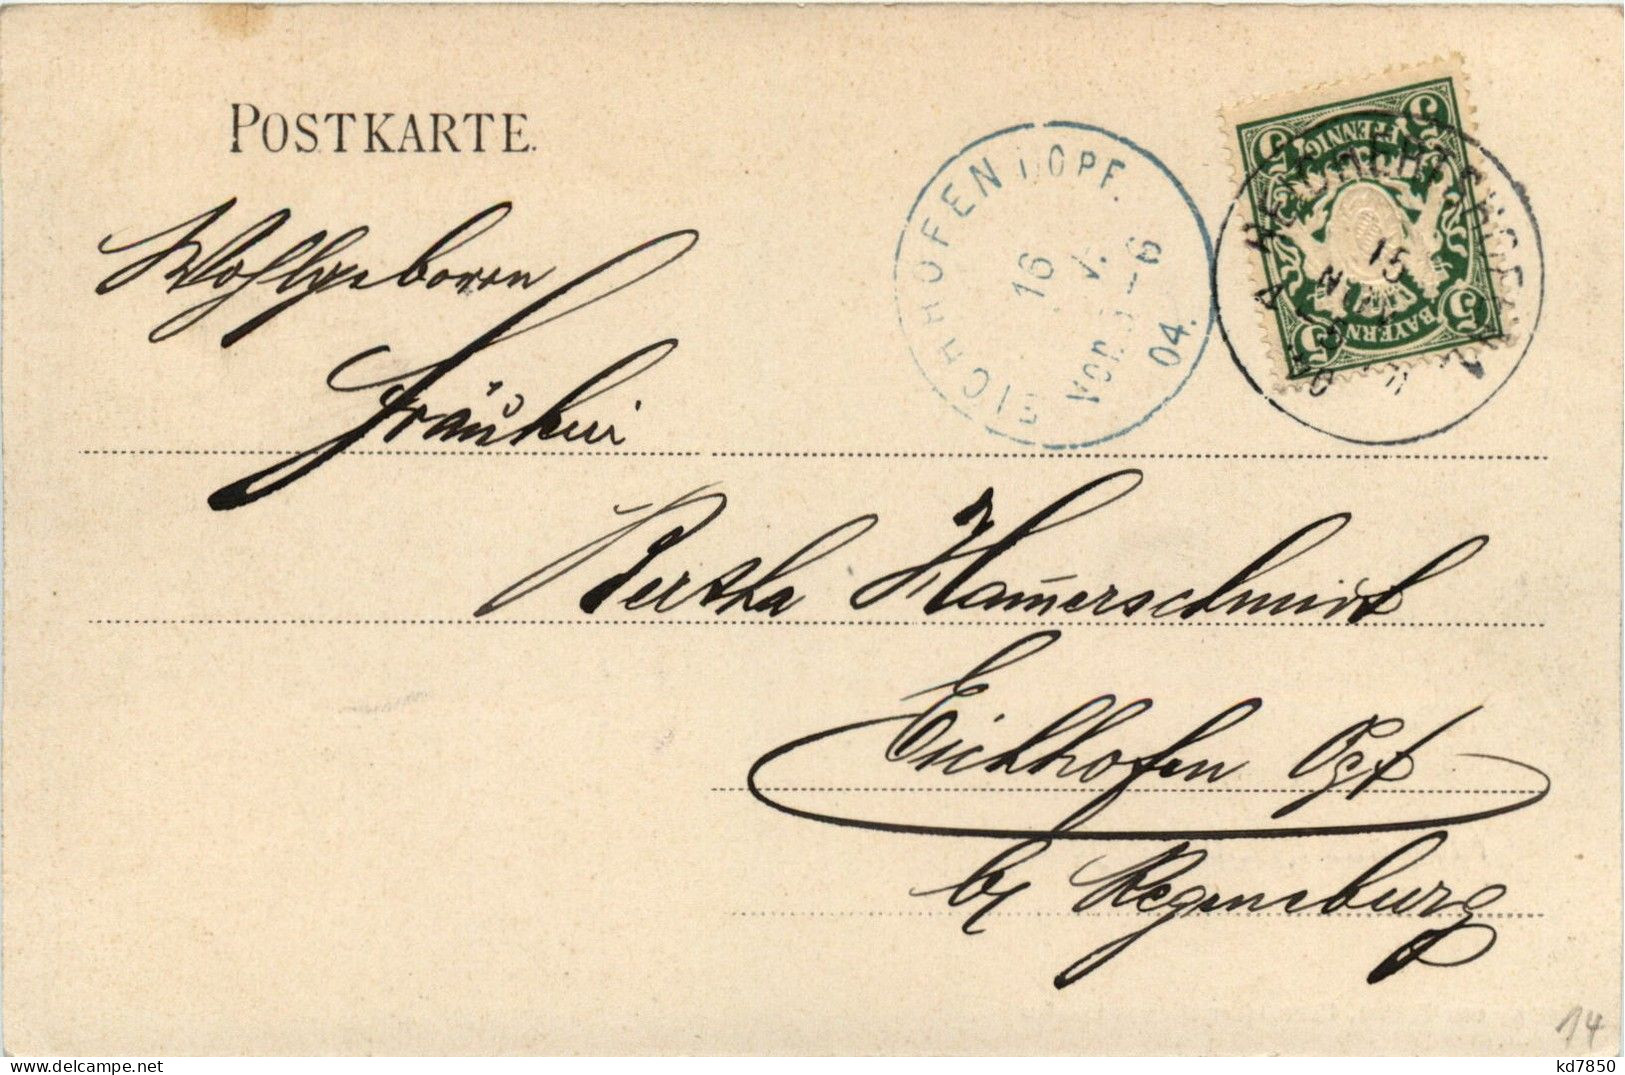 POSTKARTE.
Wohlgeboren
Fräulein
Bertha Ham̄erschmidt
Eichhofen Opf
b/ Regensburg
EICHHOFEN I OPF.
16
V.
Vor. 5-6
04.
5 5
PFENNIG
15
NOV
BAYERN
5 5
14
kd7850